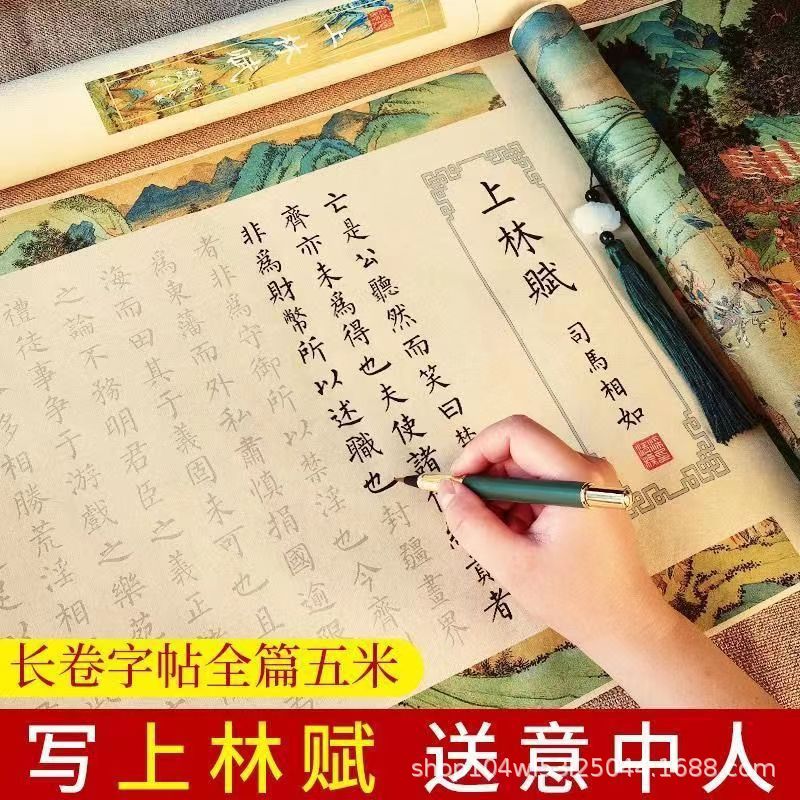 上林赋
上林賦
司馬相如
亡是公聽然而笑曰
齊亦未為得也夫使諸貢者
非為財幣所以述職也封疆畫界
者非為守御所以禁淫也今齊
為東藩而外私肅慎捐國逾限
海而田其于義固未可也且
之論不務明君臣之義正
禮徒事爭于游戲之樂苑
多相勝荒淫相
长卷字帖全篇五米
写上林赋 送意中人